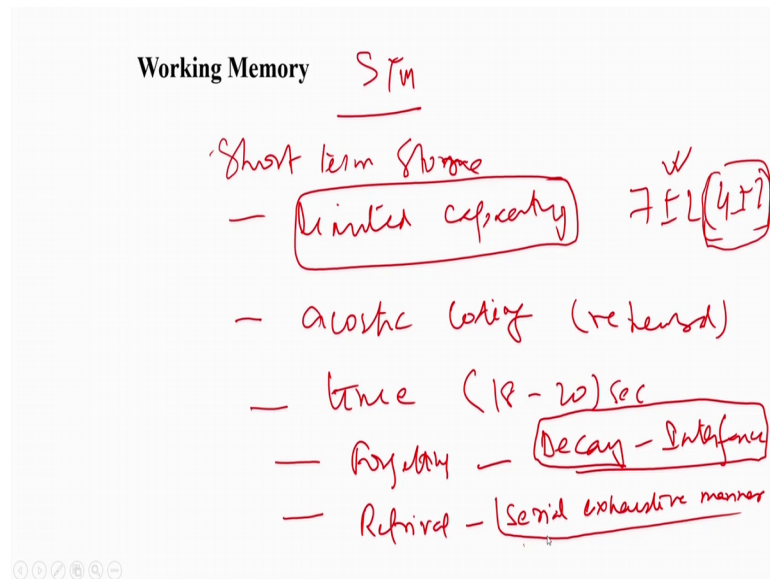 Working Memory STM
Short term Storage
— Limited capacity 7±2 (4±2)
— acostic Coding (rehearsal)
— time (18-20) sec
— Forgetting — Decay - Interference
— Retrival - Serial exhaustive manner